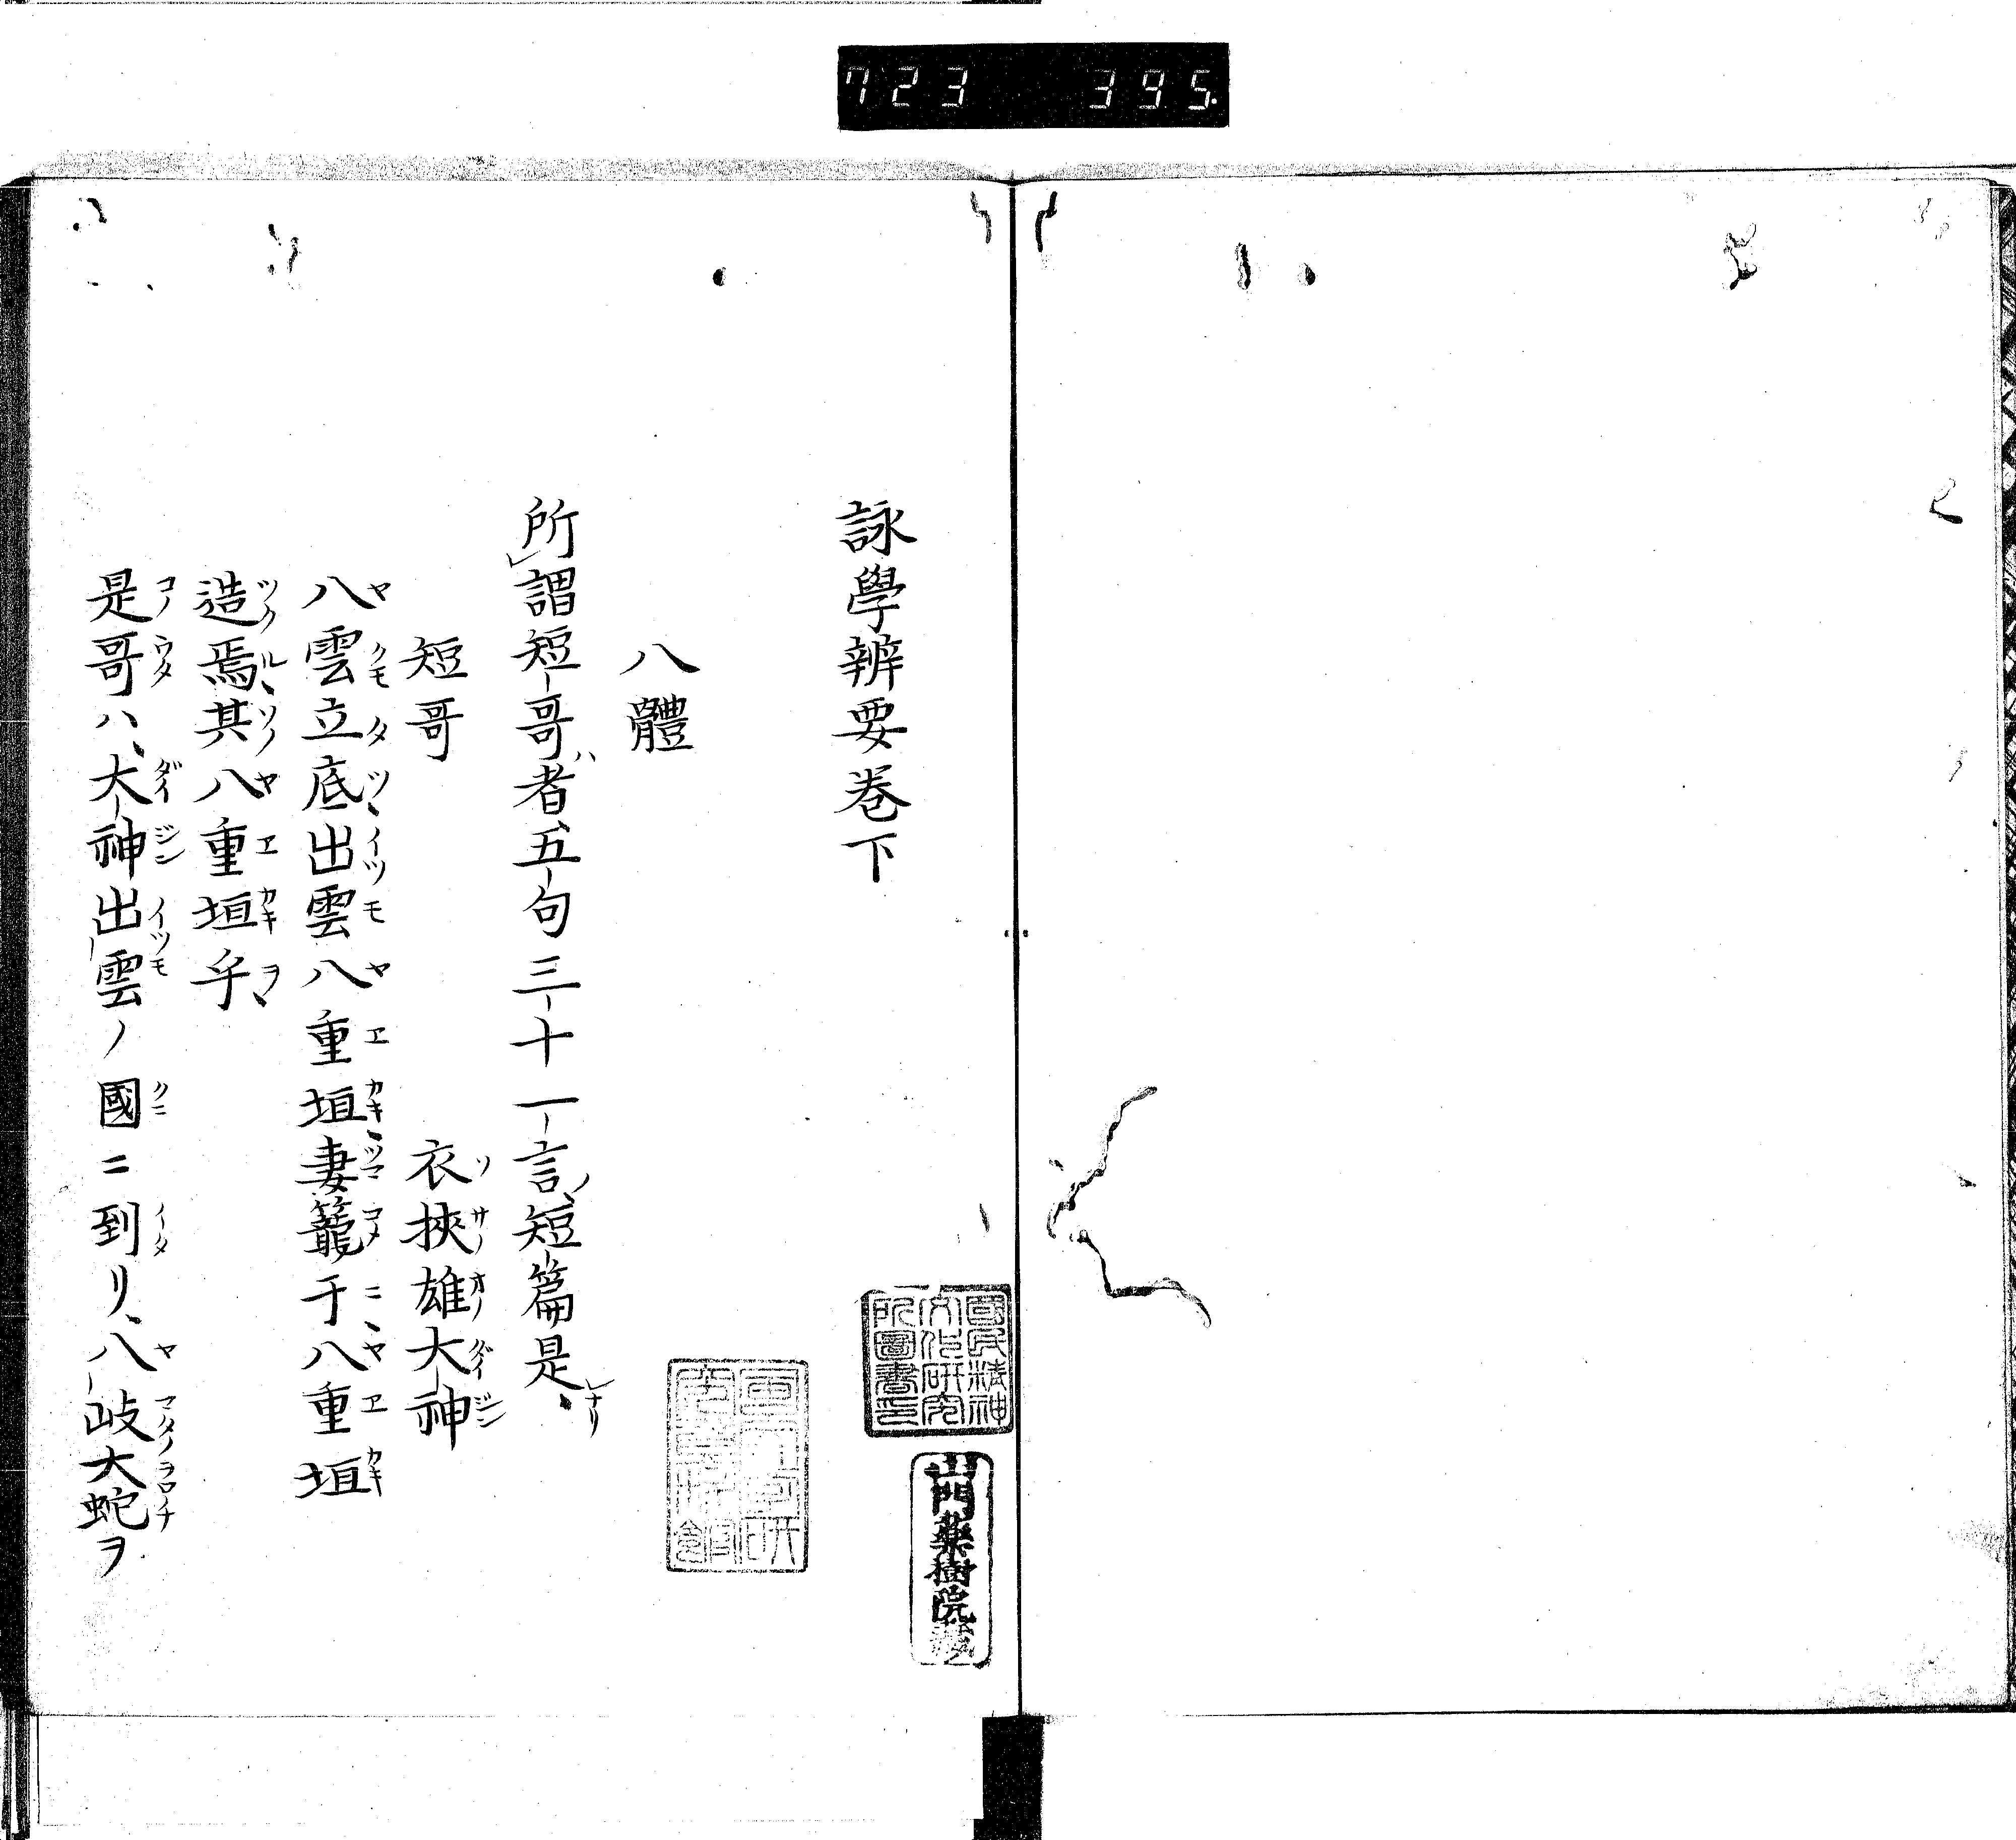 723 395.
詠學辨要卷下
八體
所謂短哥者五句三十一言短篇是
短哥 衣挾雄大神
八雲立底出雲八重垣妻籠于八重垣
造焉其八重垣乎
是哥ハ、大神出雲ノ國ニ到リ、八岐大蛇ヲ
國民精神文化研究所圖書印
山門藥樹院藏